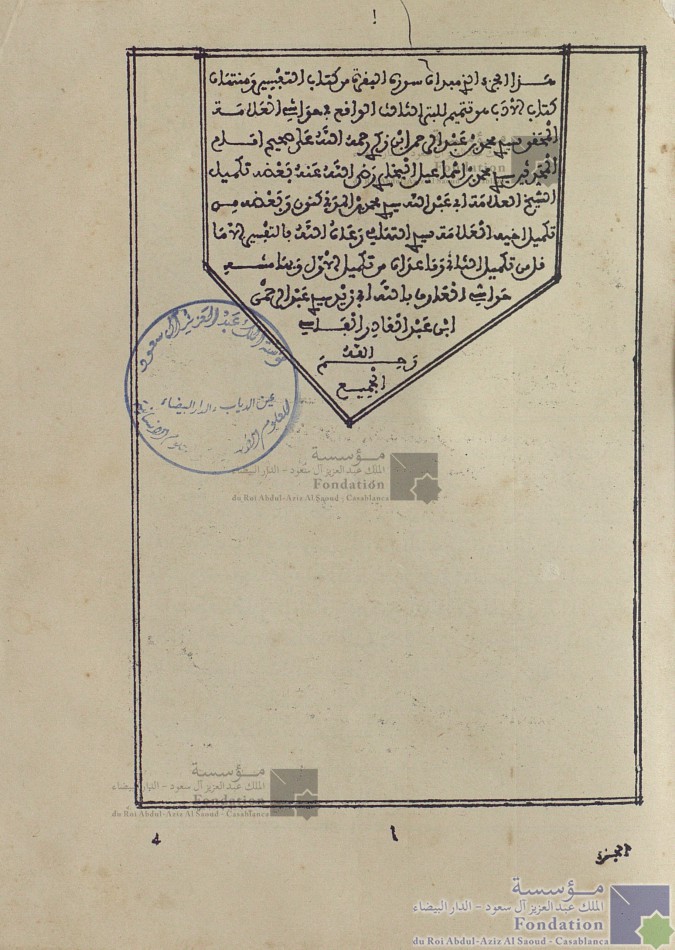 هذا الجزء الذي مبدأه سورة البقرة من كتاب التفسير ومنتهاه
كتاب الأدب هو تتميم للبتر الثالث الواقع في حواشي العلامة
المحقق سيدي محمد بن عبد الرحمن ابن زكري رحمه الله على صحيح إمام
المحدثين سيدي محمد بن إسماعيل البخاري رضي الله عنه بعضه تكميل
الشيخ العلامة أبي عبد الله سيدي محمد بن المدني كنون وبعضه من
تكميل أخيه العلامة سيدي التهامي وعاه الله بالتفسير الأما
قل من تكميل الثاني وما عداه من تكميل الأول وبهامشه
حواشي العارف بالله أبي زيد سيدي عبد الرحمن
ابن عبد القادر الفاسي
رحم الله
الجميع
مؤسسة الملك عبد العزيز آل سعود
عين الدياب، الدار البيضاء
للعلوم الإنسانية
مؤسسة
الملك عبد العزيز آل سعود - الدار البيضاء
Fondation
du Roi Abdul-Aziz Al Saoud - Casablanca
مؤسسة
الملك عبد العزيز آل سعود - الدار البيضاء
Fondation
du Roi Abdul-Aziz Al Saoud - Casablanca
الجزء
مؤسسة
الملك عبد العزيز آل سعود - الدار البيضاء
Fondation
du Roi Abdul-Aziz Al Saoud - Casablanca